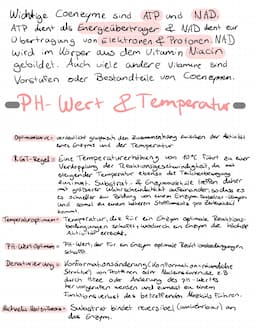 Wichtige Coenzyme sind ATP und NAD.
ATP dient als Energieüberträger & NAD dient zur
Übertragung von Elektronen & Protonen. NAD
wird im Körper aus dem Vitamin Niacin
gebildet. Auch viele andere Vitamine sind
Vorstufen oder Bestandteile von Coenzymen.
PH-Wert & Temperatur
verdeutlicht graphisch den Zusammenhang zwischen der Aktivität
eines Enzyms und der Temperatur
RGT-Regel: Eine Temperaturerhöhung von 10°C führt zu einer
Verdopplung der Reaktionsgeschwindigkeit, da mit
steigender Temperatur ebenso die Teilchenbewegung
zunimmt. Substrat- & Enzymmoleküle treffen daher
mit größerer Wahrscheinlichkeit aufeinander, sodass es
es schneller zur Bildung von einem Enzym-Substrat-Komplex
und somit zu einem höheren Stoffumsatz pro Zeiteinheit
kommt.
Temperaturoptimum: Temperatur, die für ein Enzym optimale Reaktions-
bedingungen schafft, wodurch ein Enzym die höchste
Aktivität erreicht.
PH-Wert Optimum: PH-Wert, der für ein Enzym optimale Reaktionsbedingungen
schafft.
Denaturierung: Konformationsänderung (Konformation = räumliche
Struktur) von Proteinen oder Nucleinsäuren, z.B
durch Hitze oder Änderung des pH-Wertes
hervorgerufen werden und somit zu einem
Funktionsverlust des betreffenden Moleküls führen.
Substrat bindet reversibel (umkehrbar) an
das Enzym.